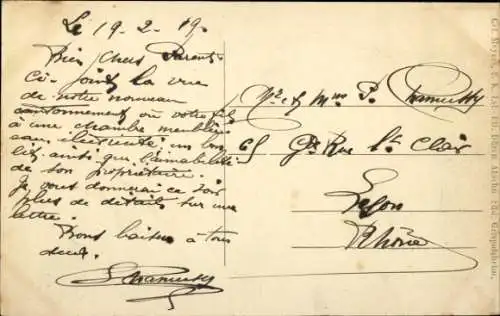 Le 19-2-19.
Bien chers Parents.
Ci-joint la vue
de notre nouveau
cantonnement où votre fils
a une chambre meublée
avec électricité, un bon
lit, ainsi que l'amabilité
de son propriétaire.
Je vous donnerai ce soir
plus de détails sur une
lettre.
Bons baisers à tous
deux.
Mr et Mme P.
65 Gde Rue St Clair
Lyon
Rhône